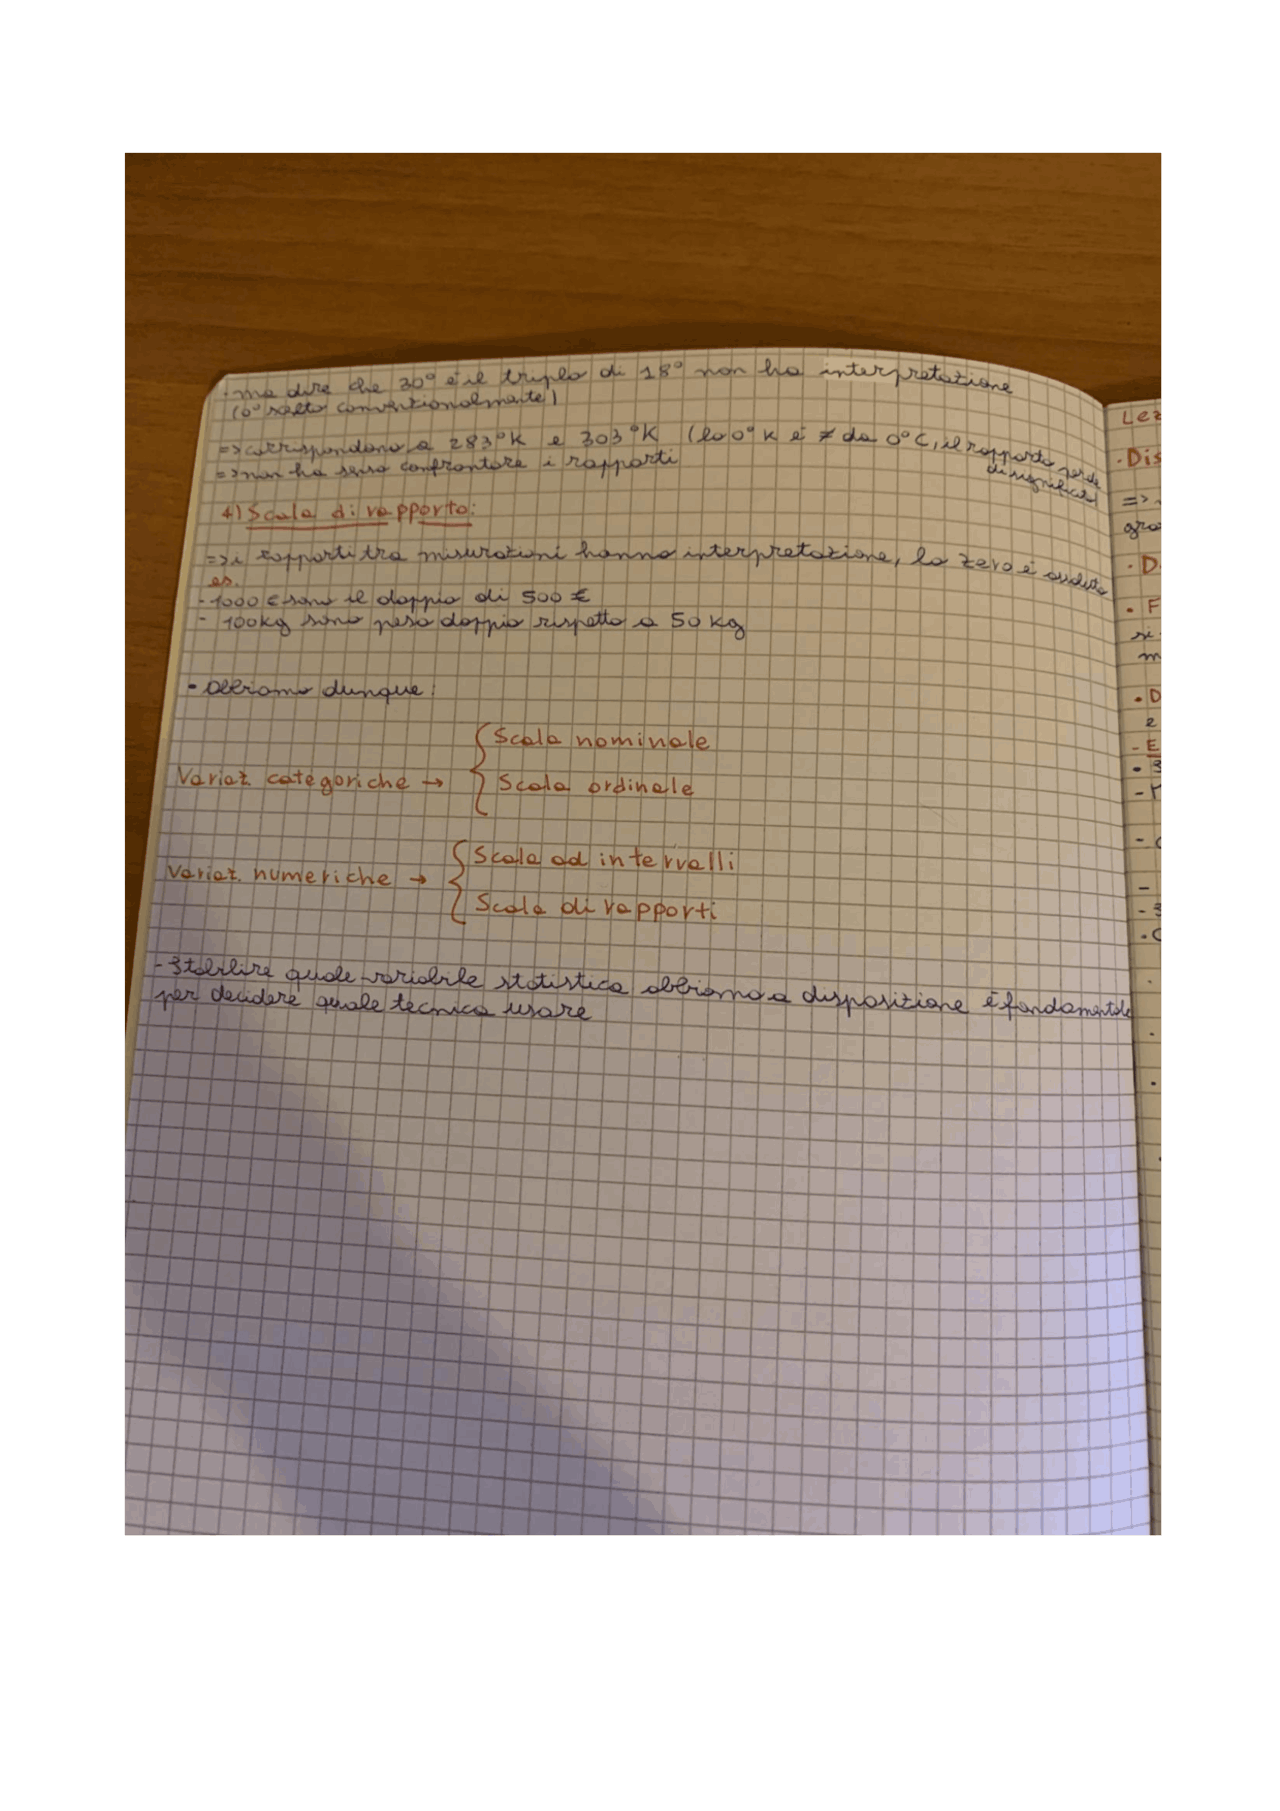 - ma dire che 30° è il triplo di 18° non ha interpretazione
(0° scelto convenzionalmente)
=> corrispondono a 283°K e 303°K (lo 0°K è ≠ da 0°C, il rapporto perde
di significato)
=> non ha senso confrontare i rapporti
4) Scala di rapporto:
=> i rapporti tra misurazioni hanno interpretazione, lo zero è assoluto
es.
- 1000 € sono il doppio di 500 €
- 100kg sono peso doppio rispetto a 50 kg
- Abbiamo dunque:
Scala nominale
Variab. categoriche →
Scala ordinale
Scala ad intervalli
Variab. numeriche →
Scala di rapporti
- Stabilire quale variabile statistica abbiamo a disposizione è fondamentale
per decidere quale tecnica usare
Lez
• Dis
=>
gra
• D
• F
si
m
• D
2
- E